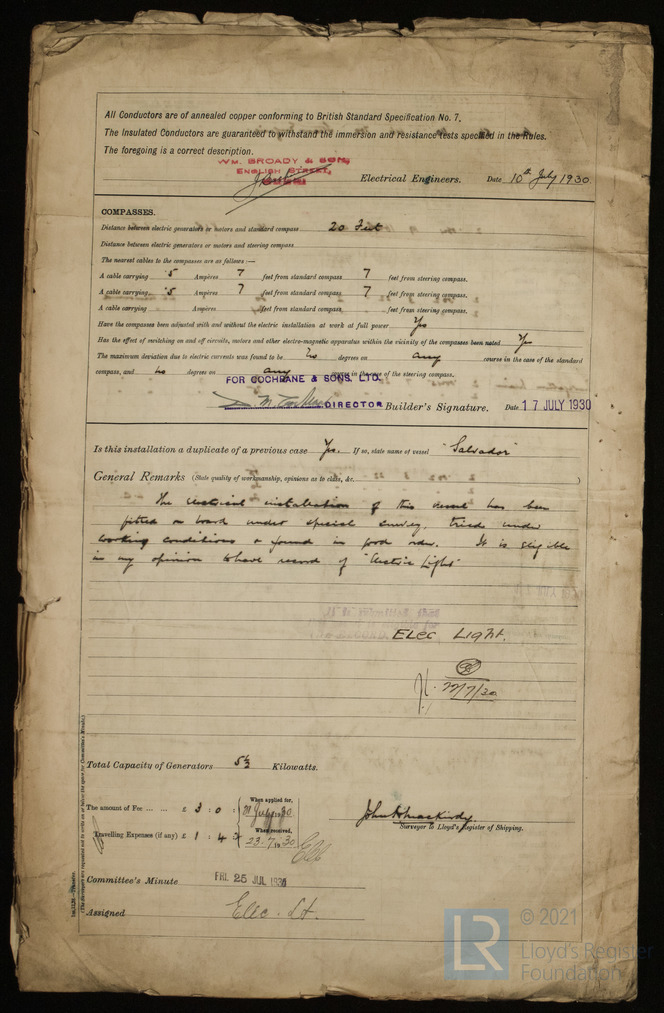 All Conductors are of annealed copper conforming to British Standard Specification No. 7.
The Insulated Conductors are guaranteed to withstand the immersion and resistance tests specified in the Rules.
The foregoing is a correct description.
WM. BROADY & SON,
ENGLISH STREET,
Electrical Engineers. Date 10th July 1930.
COMPASSES.
Distance between electric generators or motors and standard compass 20 Feet
Distance between electric generators or motors and steering compass
The nearest cables to the compasses are as follows:—
A cable carrying 5 Ampères 7 feet from standard compass 7 feet from steering compass.
A cable carrying 5 Ampères 7 feet from standard compass 7 feet from steering compass.
A cable carrying Ampères feet from standard compass feet from steering compass.
Have the compasses been adjusted with and without the electric installation at work at full power Yes
Has the effect of switching on and off circuits, motors and other electro-magnetic apparatus within the vicinity of the compasses been noted Yes
The maximum deviation due to electric currents was found to be no degrees on any course in the case of the standard
compass, and no degrees on any course in the case of the steering compass.
FOR COCHRANE & SONS, LTD.
DIRECTOR Builder's Signature. Date 17 JULY 1930
Is this installation a duplicate of a previous case Yes. If so, state name of vessel "Salvador"
General Remarks (State quality of workmanship, opinions as to class, &c.
)
The electrical installation of this vessel has been
fitted on board under special survey, tried under
working conditions & found in good order. It is eligible
in my opinion to have record of "Electric Light"
ELEC LIGHT.
22/7/30
Total Capacity of Generators 5½ Kilowatts.
The amount of Fee ... ... £ 3 : 0 : When applied for,
Travelling Expenses (if any) £ 1 : 4 : When received,
23.7.1930
Surveyor to Lloyd's Register of Shipping.
Committee's Minute FRI. 25 JUL 1930
Assigned Elec. Lt.
(The Surveyors are requested not to write on or below the space for Committee's Minute.)
© 2021
LR Lloyd's Register
Foundation